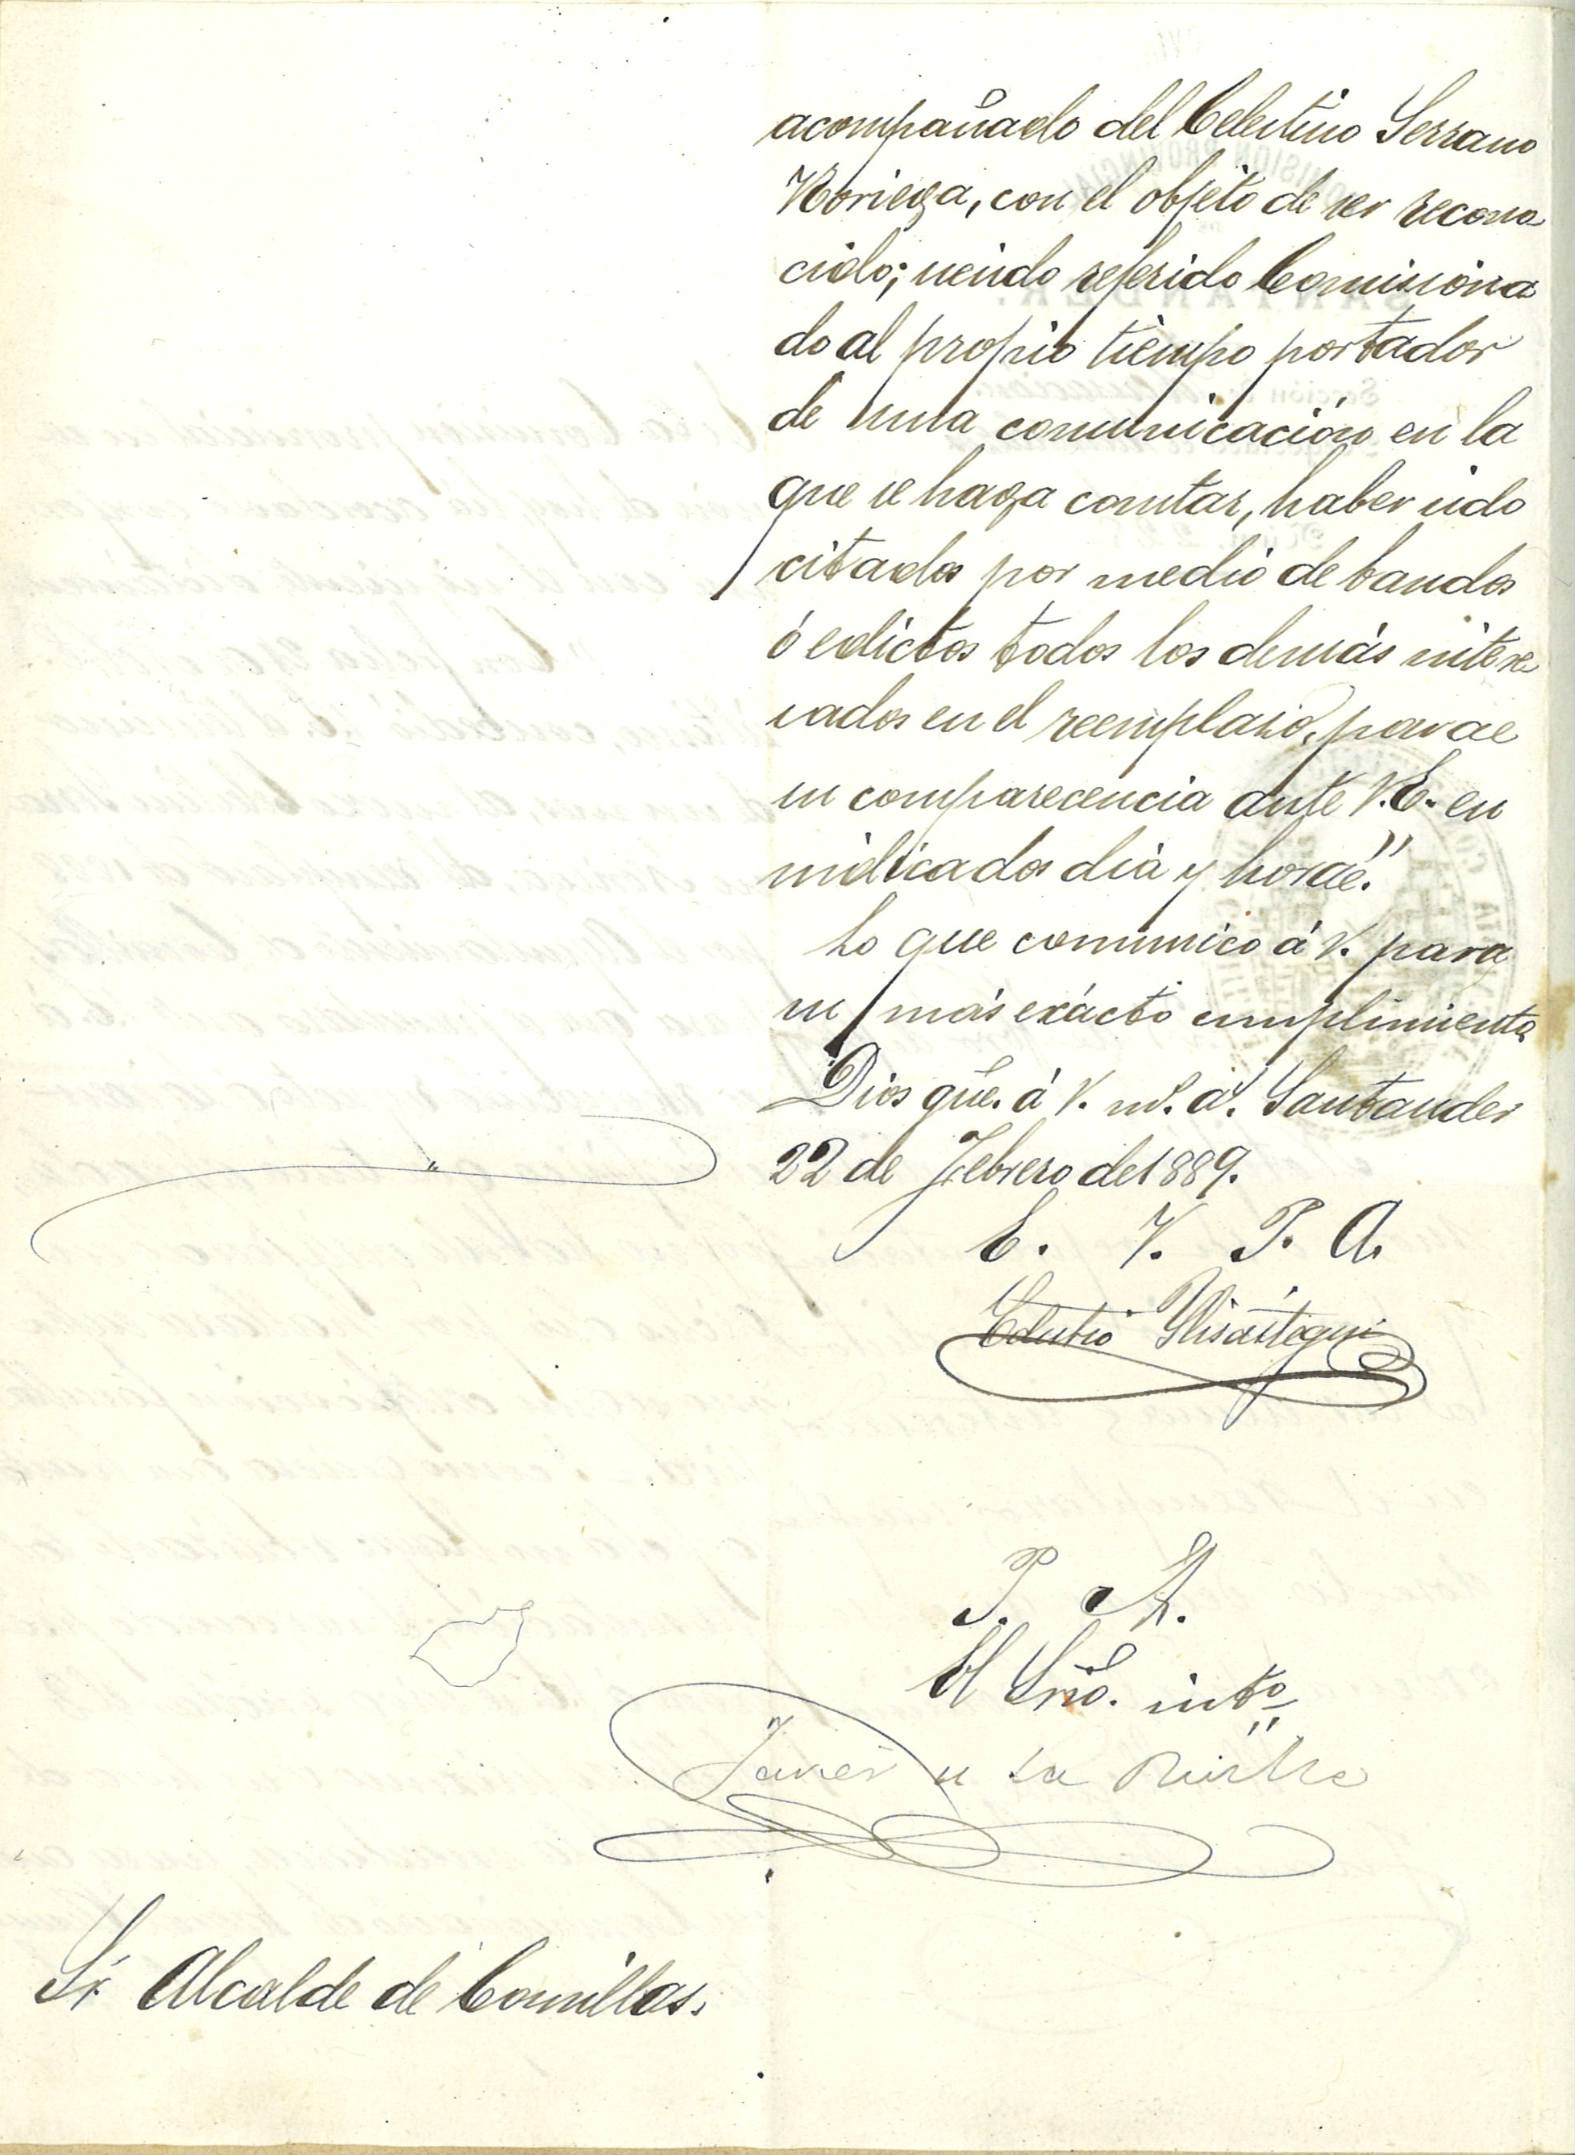 acompañado del Celestino Serrano
Noriega, con el objeto de ser recono
cido; siendo referido Comisiona
do al propio tiempo portador
de una comunicación en la
que se haga constar, haber sido
citados por medio de bandos
ó edictos todos los demás intere
sados en el reemplazo, para
su comparecencia ante V.E. en
indicados día y hora."
Lo que comunico á V. para
su más exácto cumplimiento.
Dios güe. á V. ms. as. Santander
22 de Febrero de 1889.
E. V. P. A.
P. A.
El Srio. intº
Javier de la
Sr Alcalde de Comillas.